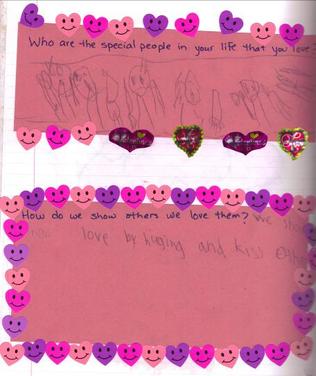 Who are the special people in your life that you love
How do we show others we love them? We show
love by huging and kiss othe